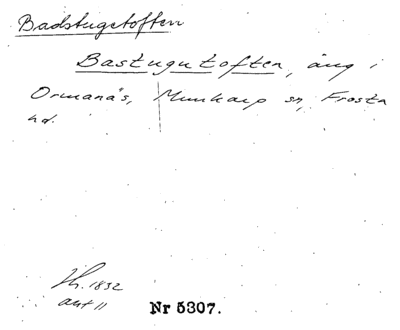 Badstugetoften
Bastugutoften, äng i
Ormanäs, Munkarp sn, Frosta
hd.
Lh. 1832
akt 11
Nr 5307.